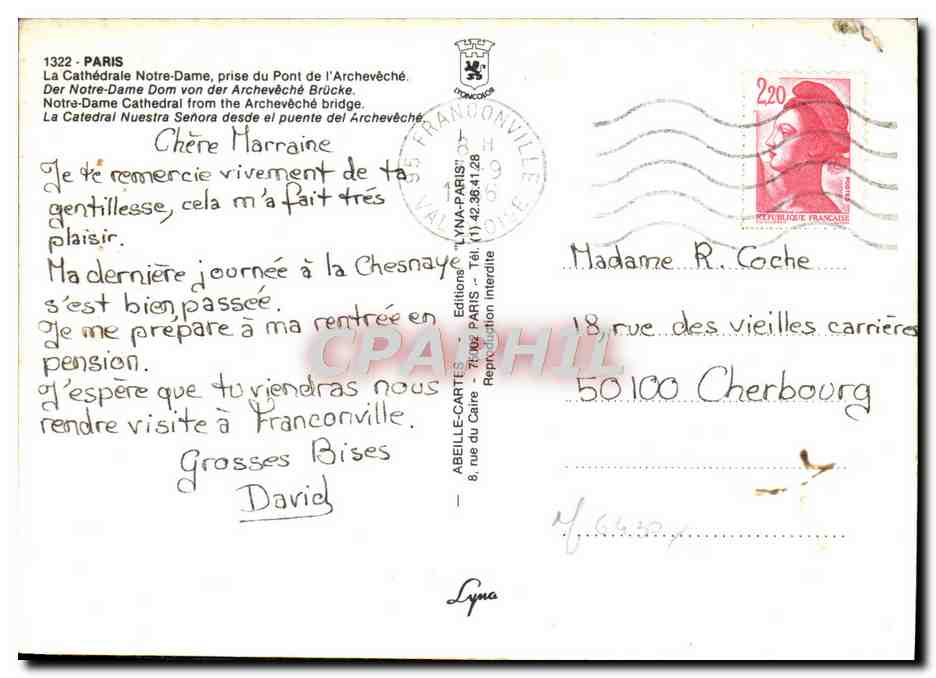 1322 - PARIS
La Cathédrale Notre-Dame, prise du Pont de l'Archevêché.
Der Notre-Dame Dom von der Archevêché Brücke.
Notre-Dame Cathedral from the Archevêché bridge.
La Catedral Nuestra Señora desde el puente del Archevêché.
Chère Marraine
Je te remercie vivement de ta
gentillesse, cela m'a fait trés
plaisir.
Ma dernière journée à la Chesnaye
s'est bien passée.
Je me prépare à ma rentrée en
pension.
J'espère que tu viendras nous
rendre visite à Franconville.
Grosses Bises
David
LYONCOLOR
95 FRANCONVILLE
VAL OISE
— ABEILLE-CARTES — Editions "LYNA-PARIS" —
8, rue du Caire - 75002 PARIS - Tél. (1) 42.36.41.28
Reproduction interdite
2,20
POSTES
REPUBLIQUE FRANÇAISE
Madame R. Coche
18, rue des vieilles carrières
50100 Cherbourg
CPAPHIL
Lyna